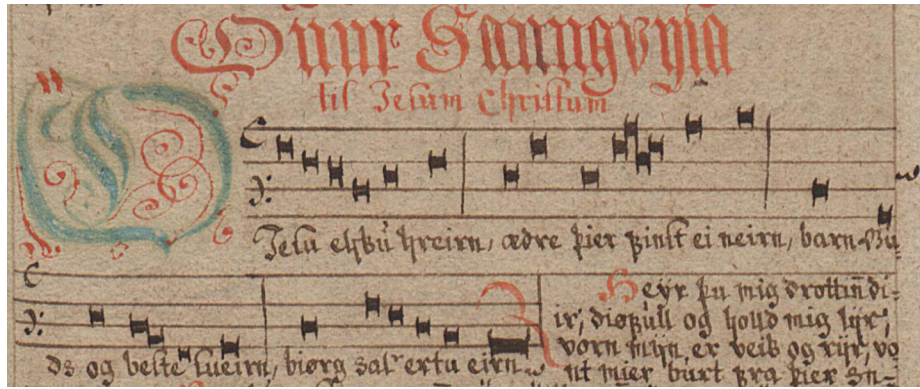 Ønnr Saungvysa
til Jesum Christum
O Jesu elsku hreirn, ædre þier finst ei neirn, barn Gu
ds og beste sueirn, biörg
Heyr þu mig drottin di-
ir, og holld mig lijr,
vorn minn, er veik og rijr, vo
nt mier burt fra þier